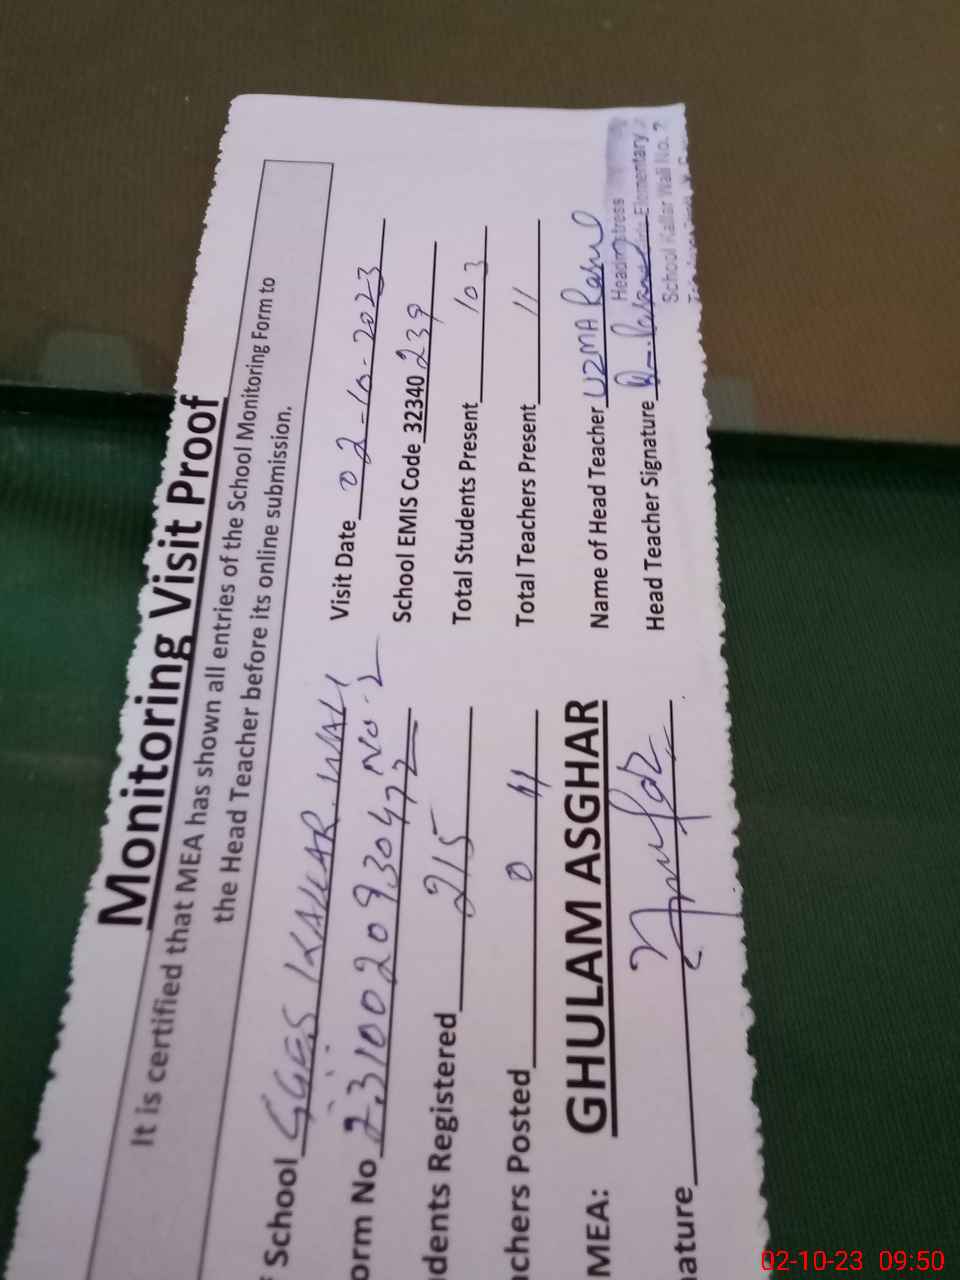 Monitoring Visit Proof
It is certified that MEA has shown all entries of the School Monitoring Form to
the Head Teacher before its online submission.
School GGES KALLAR WALI No-2
Visit Date 02-10-2023
orm No 2310020930472
School EMIS Code 32340 239
dents Registered 215
Total Students Present 103
chers Posted 0 11
Total Teachers Present 11
MEA: GHULAM ASGHAR
Name of Head Teacher UZMA Rasul
ature
Head Teacher Signature
Headmistress
Elementary
School Kallar Wali No. 2
02-10-23 09:50